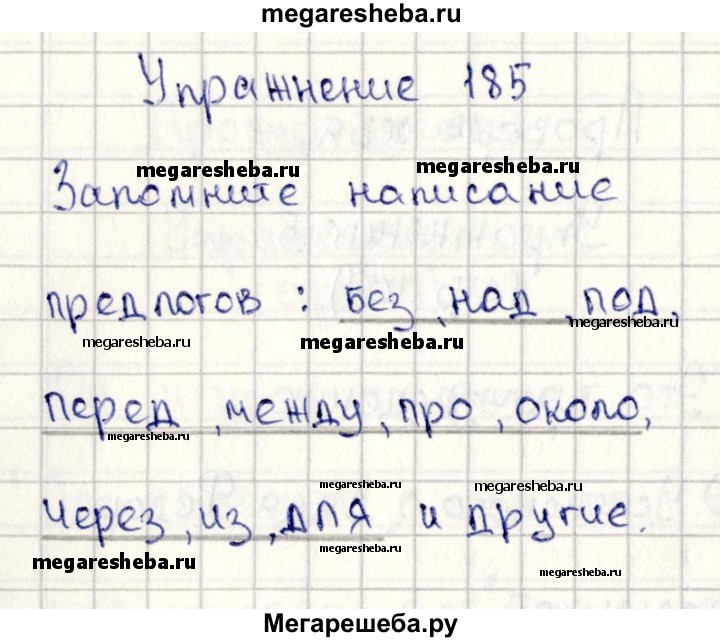 megaresheba.ru
Упражнение 185
megaresheba.ru
megaresheba.ru
Запомните написание
предлогов: без, над, под,
megaresheba.ru
megaresheba.ru
megaresheba.ru
перед, между, про, около,
megaresheba.ru
megaresheba.ru
megaresheba.ru
через, из, для и другие.
megaresheba.ru
megaresheba.ru
megaresheba.ru
Мегарешеба.ру